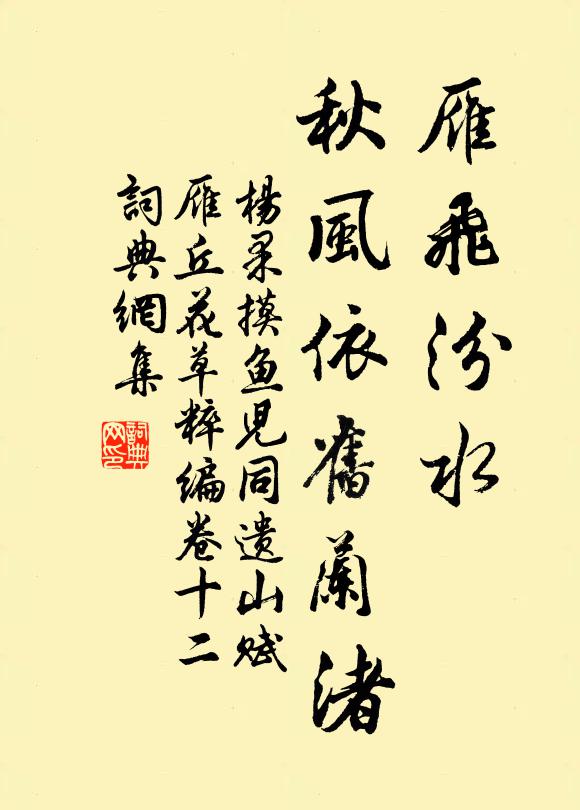 雁飛汾水
秋風依舊蘭渚
楊果摸魚兒同遺山賦
雁丘花草粹編卷十二
詞典網集
詞典
网印